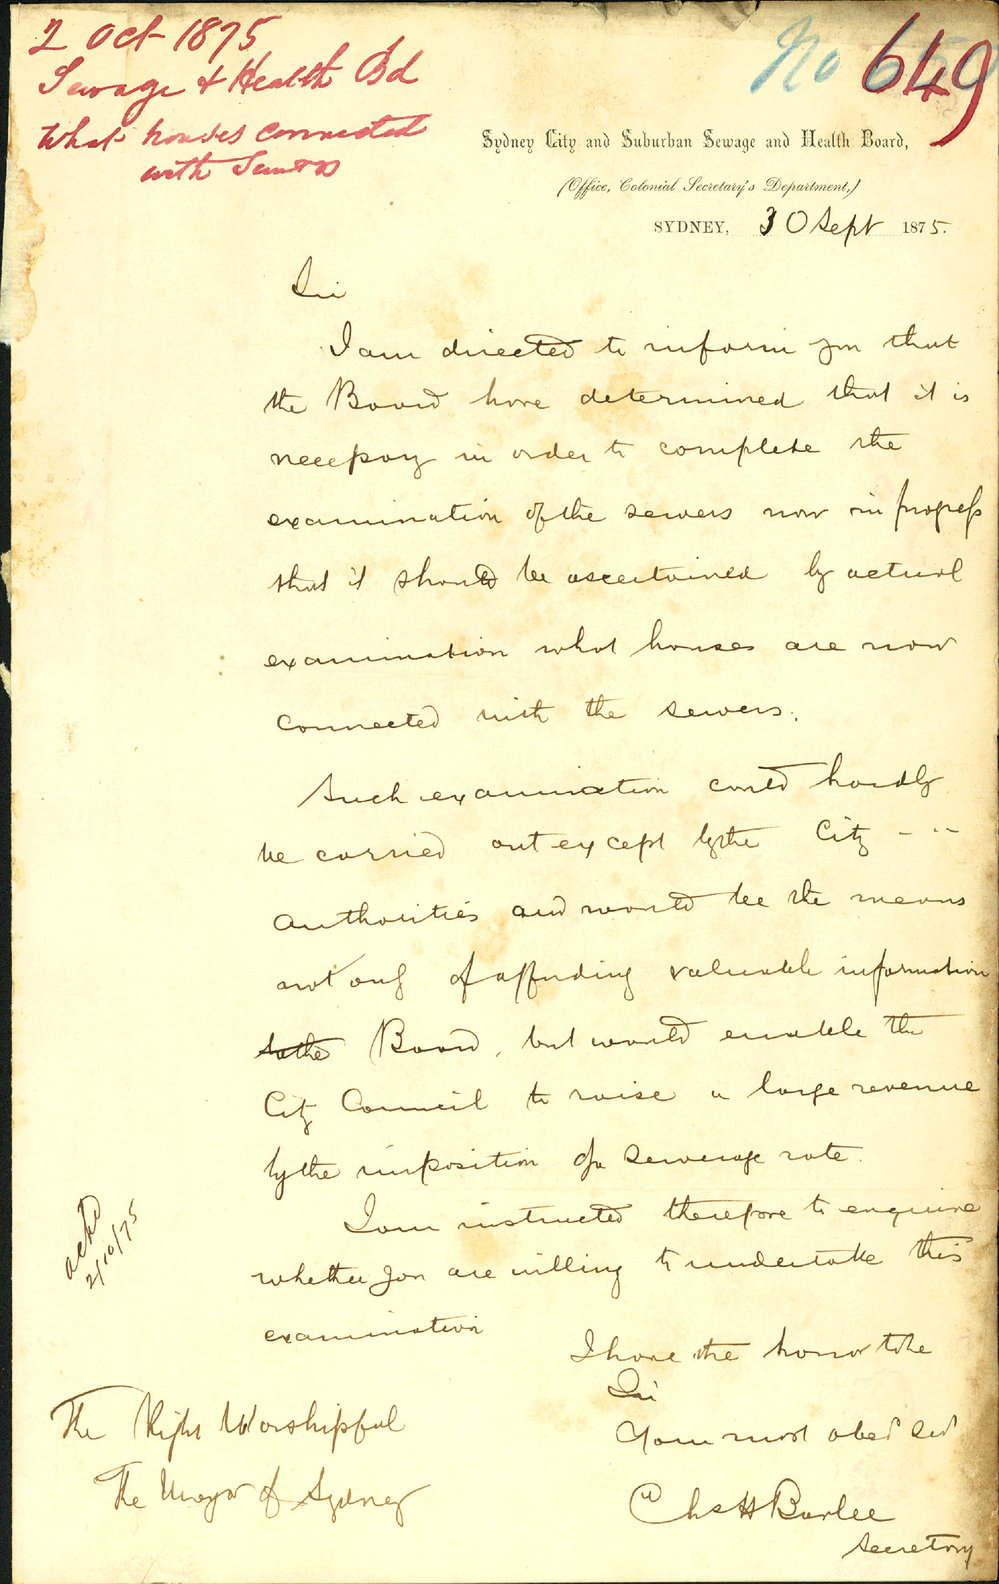 2 Oct 1875
Sewage & Health Bd
What houses connected
with Sewers
No 649
Sydney City and Suburban Sewage and Health Board,
(Office, Colonial Secretary's Department,)
SYDNEY, 30 Sept 1875.
Sir
I am directed to inform you that
the Board have determined that it is
necessary in order to complete the
examination of the sewers now in progress
that it should be ascertained by actual
examination what houses are now
connected with the sewers.
Such examination could hardly
be carried out except by the City
authorities and would be the means
not only of affording valuable information
to the Board, but would enable the
City Council to raise a large revenue
by the imposition of a sewerage rate.
I am instructed therefore to enquire
whether you are willing to undertake this
examination
ackd
2/10/75
I have the honor to be
Sir
Your most obed Sert
Chs H Barlee
Secretary
The Right Worshipful
The Mayor of Sydney